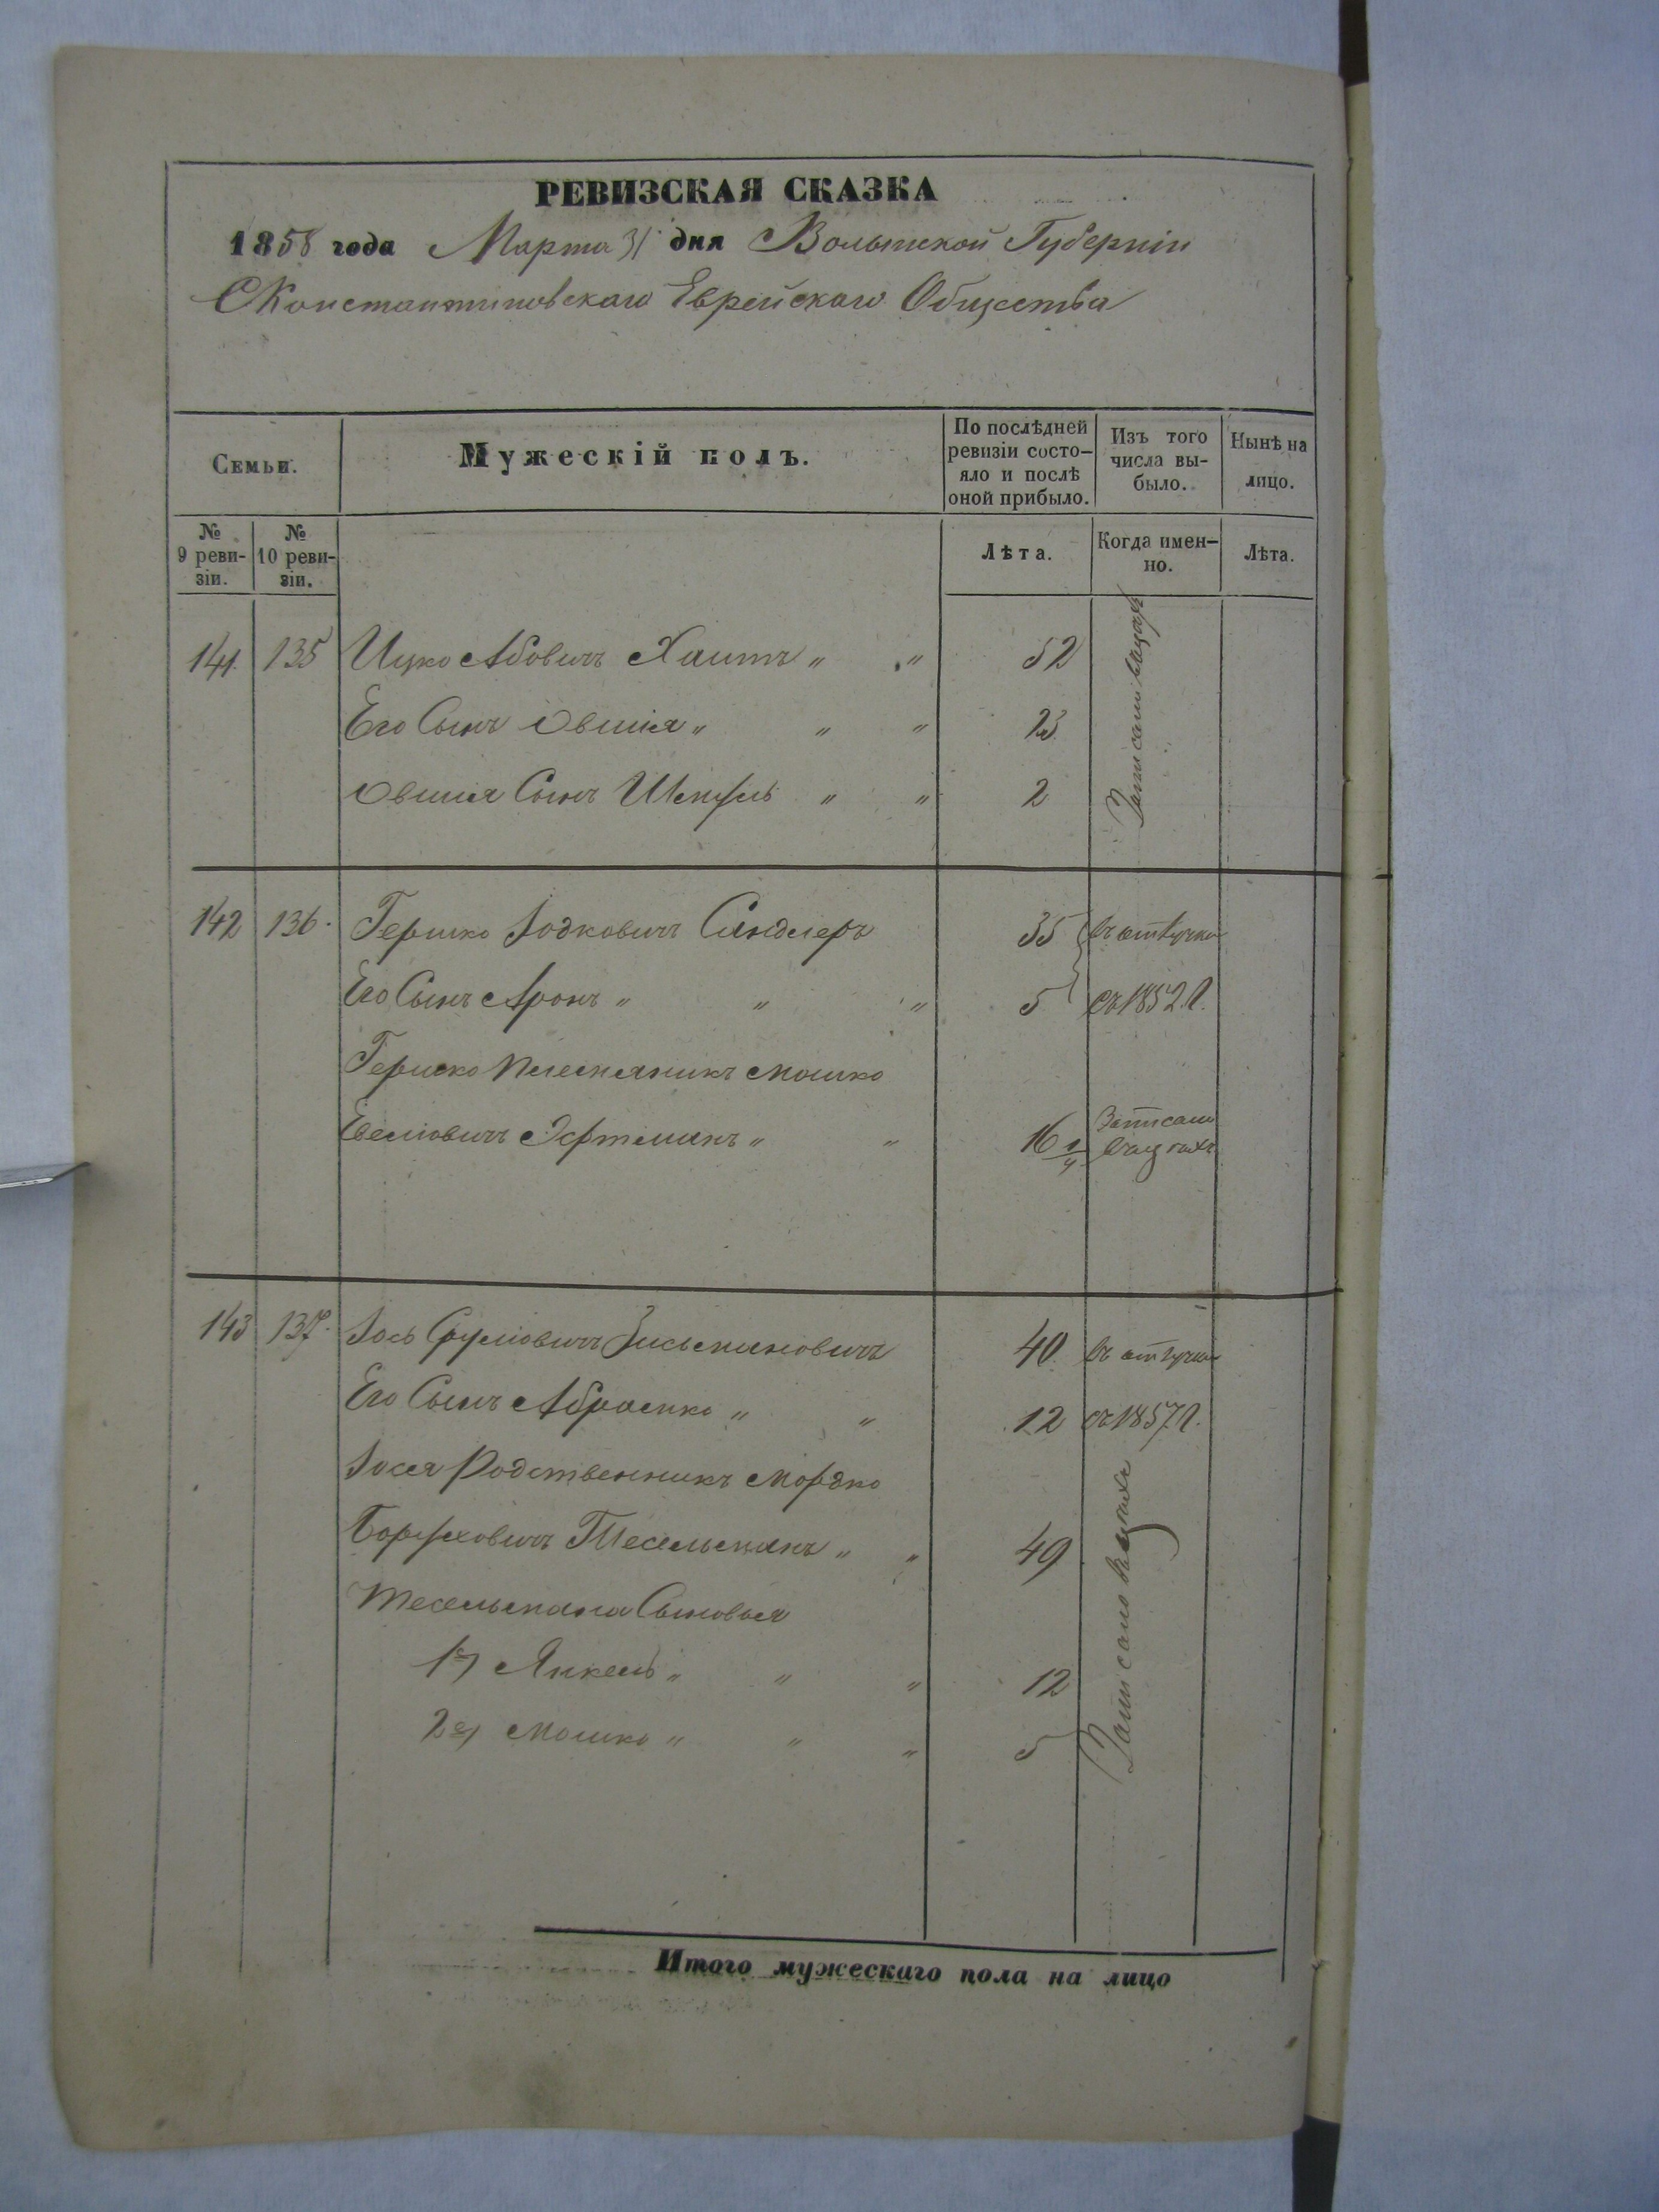 РЕВИЗСКАЯ СКАЗКА
1858 года Марта 31 дня Волынской Губерніи
СКонстантиновскаго Еврейскаго Общества
Семьи.
Мужескій полъ.
По послѣдней ревизіи состо-
яло и послѣ
оной прибыло.
Изъ того
числа вы-
было.
Нынѣ на
лицо.
№
9 реви-
зіи.
№
10 реви-
зіи.
Лѣта.
Когда имен-
но.
Лѣта.
141. 135 Ицко Абовичъ Хаитъ „ „ 52
Его Сынъ Овшія „ „ „ 23
Овшія Сынъ Шепсель „ „ 2
142 136. Гершко Іодковичъ Сандлеръ 35 въ отлучке
Его Сынъ Аронъ „ „ „ 5 съ 1852 г.
Гершко племяникъ Мошко
16 1/4 Записан
143 137. Іось Сруліовичъ Зисьмановичъ 40 въ отлучке
Его Сынъ Абрамко „ „ 12 съ 1857 г.
Іося Родственникъ Мордко
Боруховичъ Тесельманъ „ „ 49
Тесельмана Сыновья
1й) Янкель „ „ „ 12
2й) Мошко „ „ „ 5
Итого мужескаго пола на лицо